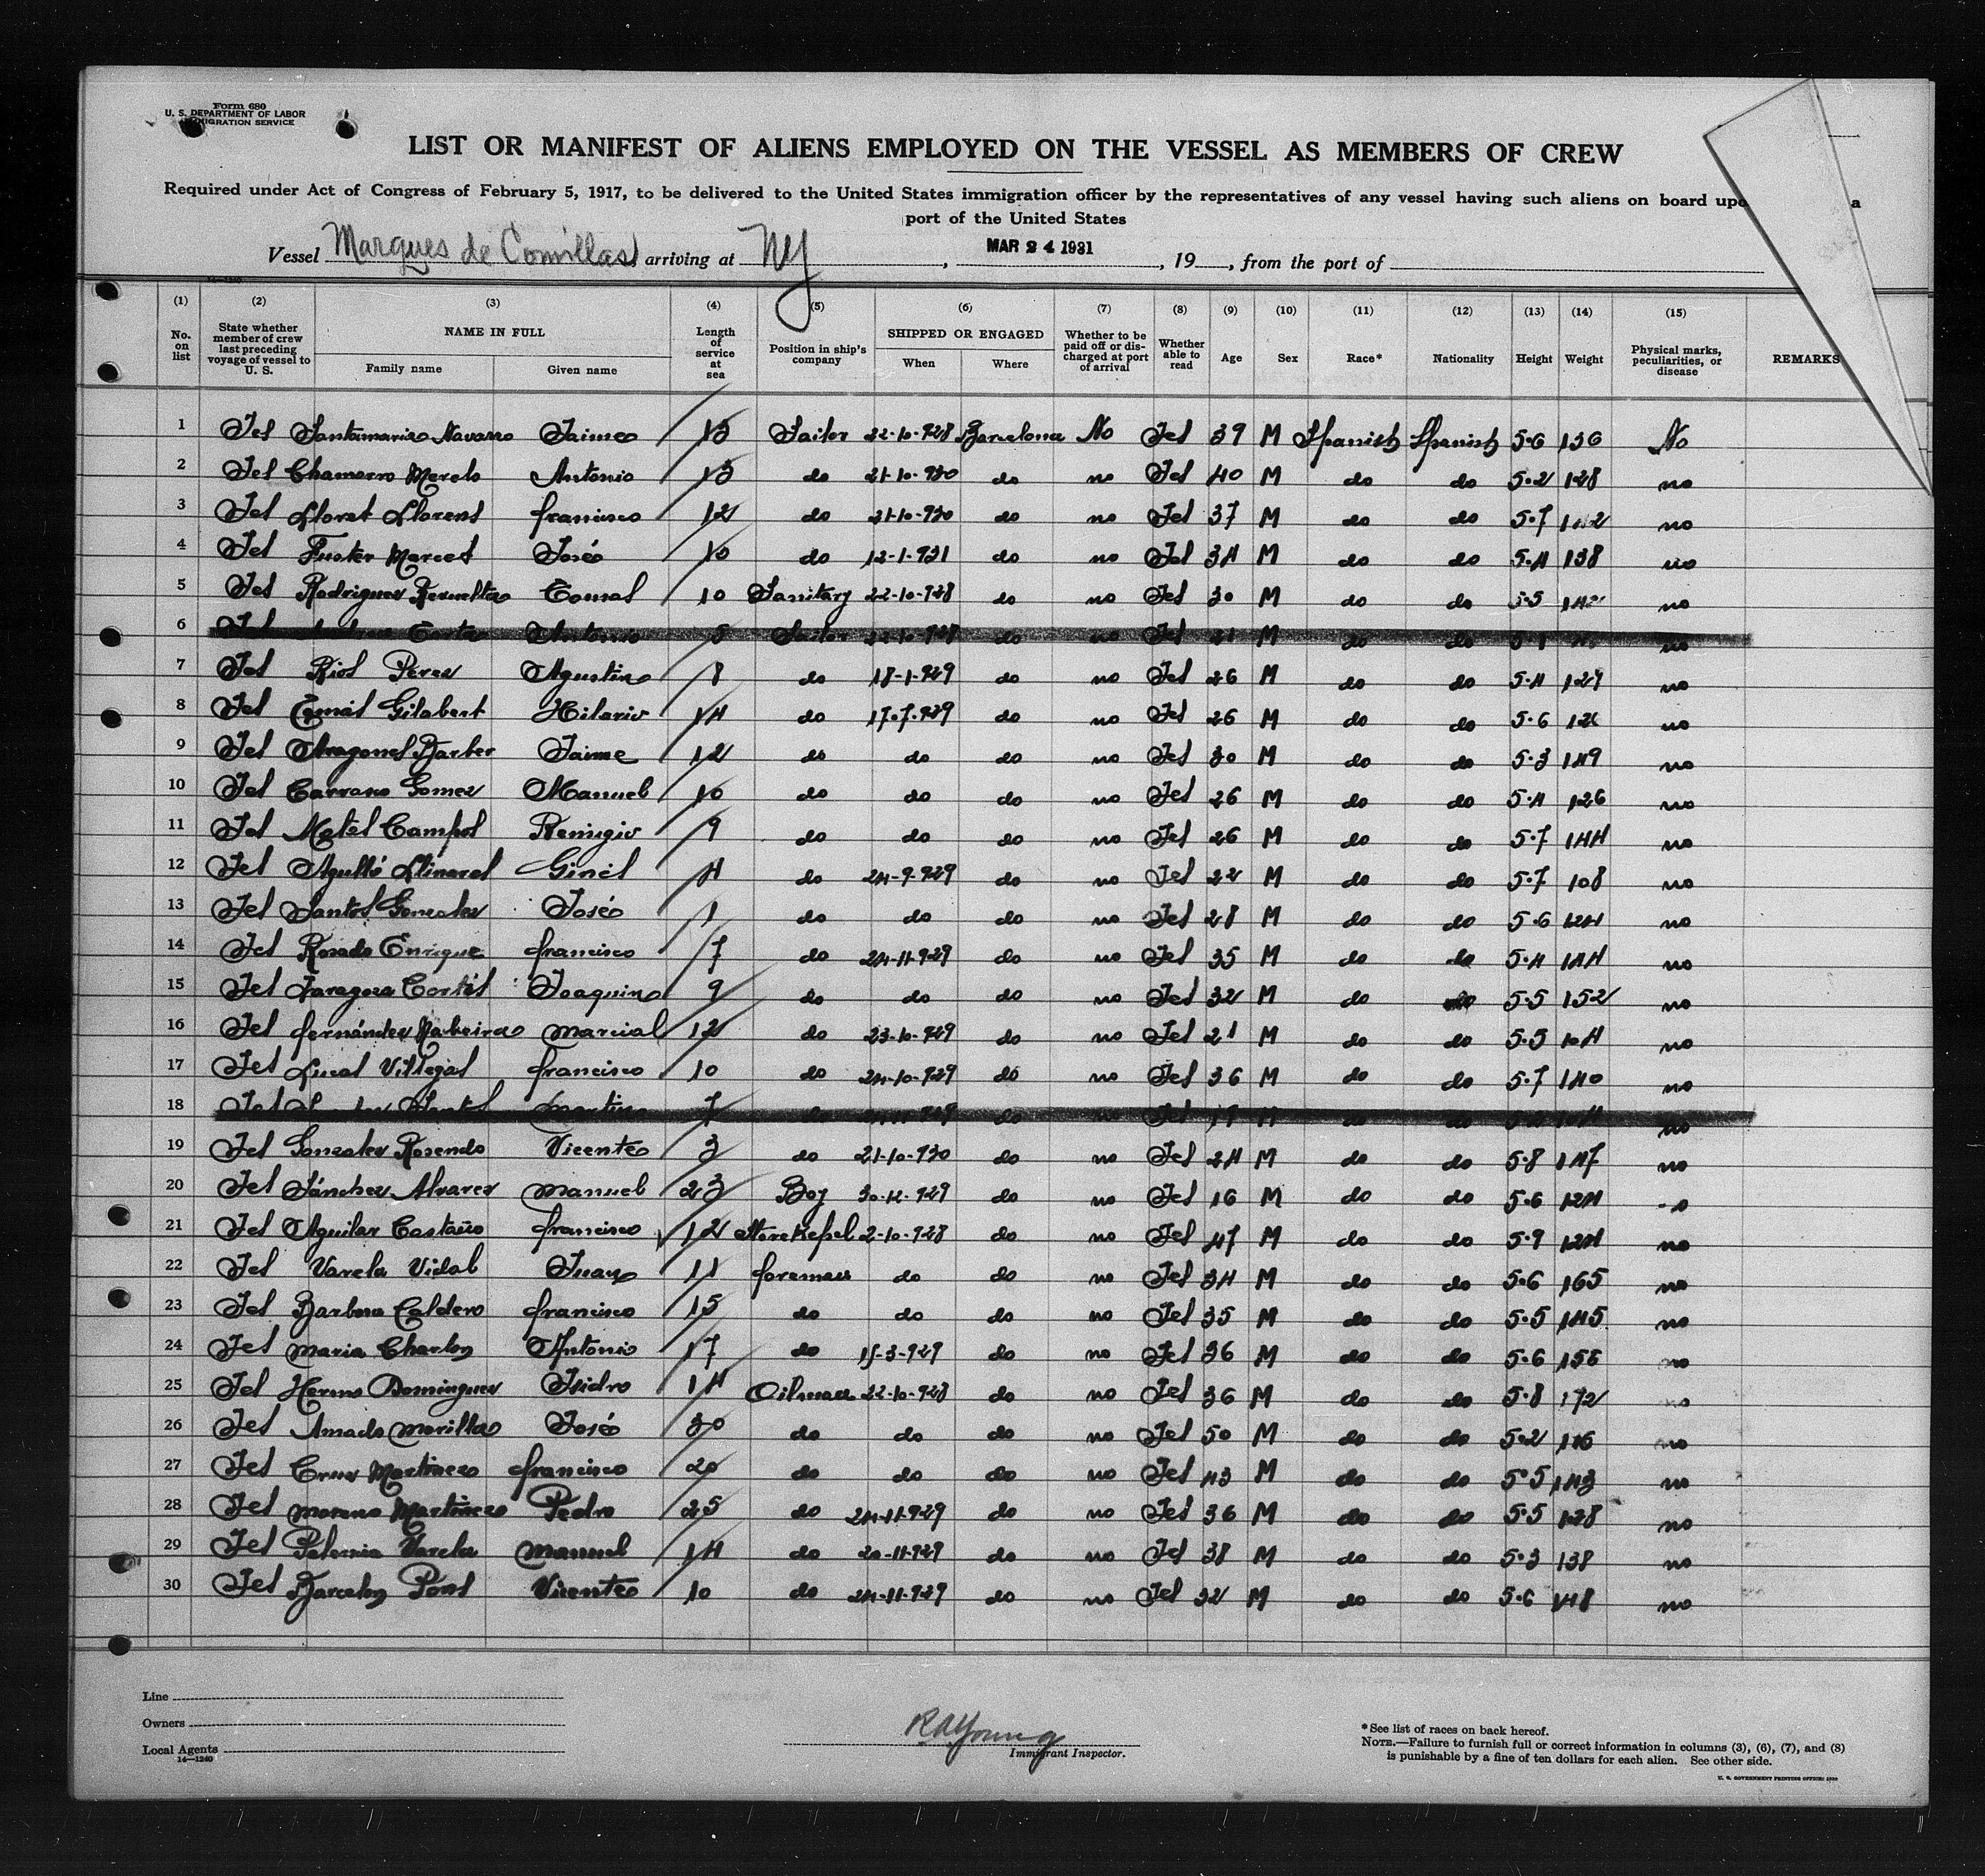 Form 680
U. S. DEPARTMENT OF LABOR
IMMIGRATION SERVICE
LIST OR MANIFEST OF ALIENS EMPLOYED ON THE VESSEL AS MEMBERS OF CREW
Required under Act of Congress of February 5, 1917, to be delivered to the United States immigration officer by the representatives of any vessel having such aliens on board upo a
port of the United States
Vessel Marques de Comillas, arriving at NY, MAR 24 1931, 19 , from the port of
(1) (2) (3) (4) (5) (6) (7) (8) (9) (10) (11) (12) (13) (14) (15)
No. on list State whether member of crew last preceding voyage of vessel to U. S. NAME IN FULL Family name Given name Length of service at sea Position in ship's company SHIPPED OR ENGAGED When Where Whether to be paid off or discharged at port of arrival Whether able to read Age Sex Race* Nationality Height Weight Physical marks, peculiarities, or disease REMARKS
1 Yes Santamaria Navarro Jaime 15 Sailor 22-10-928 Barcelona No Yes 39 M Spanish Spanish 5-6 136 No
2 Yes Chamorro Merelo Antonio 13 do 21-10-930 do no Yes 40 M do do 5-2 128 no
3 Yes Lloret Llorens francisco 12 do 21-10-930 do no Yes 37 M do do 5-7 no
4 Yes Fuster Marcet José 10 do 12-1-931 do no Yes 34 M do do 5-4 138 no
5 Yes Rodriguez Revuelta Tomas 10 Sanitary 22-10-928 do no Yes 30 M do do 5-5 142 no
6 Yes Antonio 5 Sailor 22-10-928 do no Yes 21 M do do no
7 Yes Rios Perez Agustin 8 do 18-1-929 do no Yes 26 M do do 5-4 127 no
8 Yes Tomás Gilabert Hilario 14 do 17-7-929 do no Yes 26 M do do 5-6 no
9 Yes Aragones Barber Jaime 12 do do do no Yes 30 M do do 5-3 149 no
10 Yes Carrano Gomez Manuel 10 do do do no Yes 26 M do do 5-4 126 no
11 Yes Campos Remigio 9 do do do no Yes 26 M do do 5-7 144 no
12 Yes Agulló Llinares Ginés 4 do 24-9-929 do no Yes 22 M do do 5-7 108 no
13 Yes Santos Gonzalez José 1 do do do no Yes 28 M do do 5-6 124 no
14 Yes Rosado Enrique francisco 7 do 24-11-929 do no Yes 35 M do do 5-4 144 no
15 Yes Zaragoza Cortés Joaquin 9 do do do no Yes 32 M do do 5-5 152 no
16 Yes fernández Marcial 12 do 23-10-929 do no Yes 21 M do do 5-5 104 no
17 Yes Lucas Villegas francisco 10 do 24-10-929 do no Yes 36 M do do 5-7 140 no
18 Yes Martin 7 do do no Yes 19 M do do no
19 Yes Gonzalez Rosendo Vicente 3 do 21-10-930 do no Yes 24 M do do 5-8 147 no
20 Yes Sánchez Alvarez Manuel 23 Boy 30-12-929 do no Yes 16 M do do 5-6 124 no
21 Yes Aguilar Castaño francisco 12 2-10-928 do no Yes 47 M do do 5-9 124 no
22 Yes Varela Vidal Juan 11 foreman do do no Yes 34 M do do 5-6 165 no
23 Yes Barbosa Caldero francisco 15 do do do no Yes 35 M do do 5-5 145 no
24 Yes Maria Charlon Antonio 17 do 15-3-929 do no Yes 36 M do do 5-6 156 no
25 Yes Hermo Dominguez Isidro 14 Oilman 22-10-928 do no Yes 36 M do do 5-8 172 no
26 Yes Amado Morilla José 30 do do do no Yes 50 M do do 5-2 116 no
27 Yes Cruz Martinez francisco 20 do do do no Yes 43 M do do 5-5 143 no
28 Yes Moreno Martinez Pedro 25 do 24-11-929 do no Yes 36 M do do 5-5 128 no
29 Yes Varela Manuel 14 do 20-11-929 do no Yes 38 M do do 5-3 138 no
30 Yes Barcelon Pons Vicente 10 do 24-11-929 do no Yes 32 M do do 5-6 148 no
Line
Owners
Local Agents
14—1240
RAYoung
Immigrant Inspector.
*See list of races on back hereof.
NOTE.—Failure to furnish full or correct information in columns (3), (6), (7), and (8)
is punishable by a fine of ten dollars for each alien. See other side.
U. S. GOVERNMENT PRINTING OFFICE: 1930